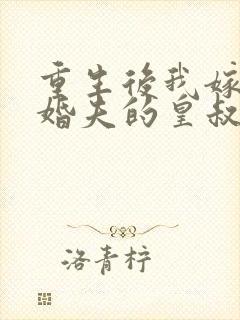 重生後我嫁
婚夫的皇叔
洛青柠